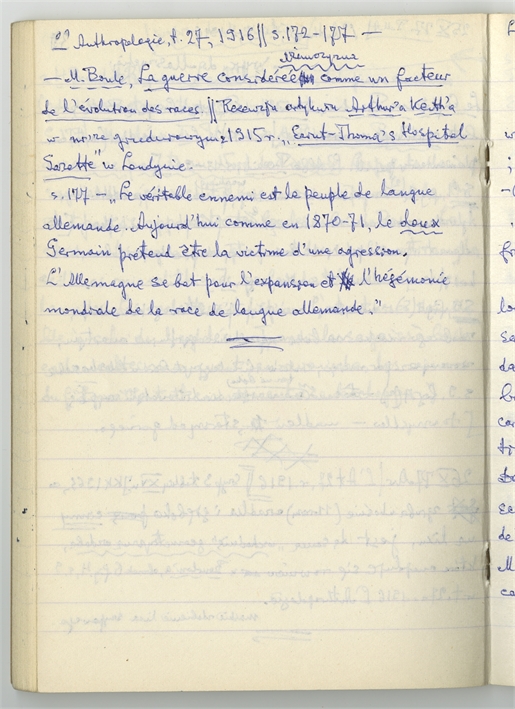 L'Anthropologie, t. 27, 1916 // s. 172-177 —
— M. Boule, La guerre considérée comme un facteur
de l'évolution des races // Recenzja artykułu Arthur'a Keith'a
w nr-ze grudniowym 1915 r. „Saint-Thoma's Hospital
Gazette" w Londynie.
s. 177 — „Le véritable ennemi est le peuple de langue
allemande. Aujourd'hui comme en 1870-71, le doux
Germain prétend être la victime d'une agression.
L'Allemagne se bat pour l'expansion et l'hégémonie
mondiale de la race de langue allemande."